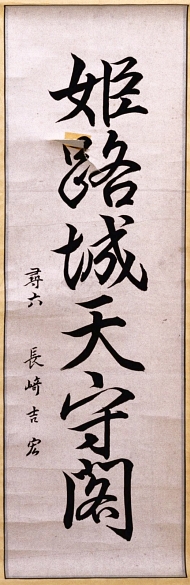 姫路城天守閣
尋六 長崎吉宏